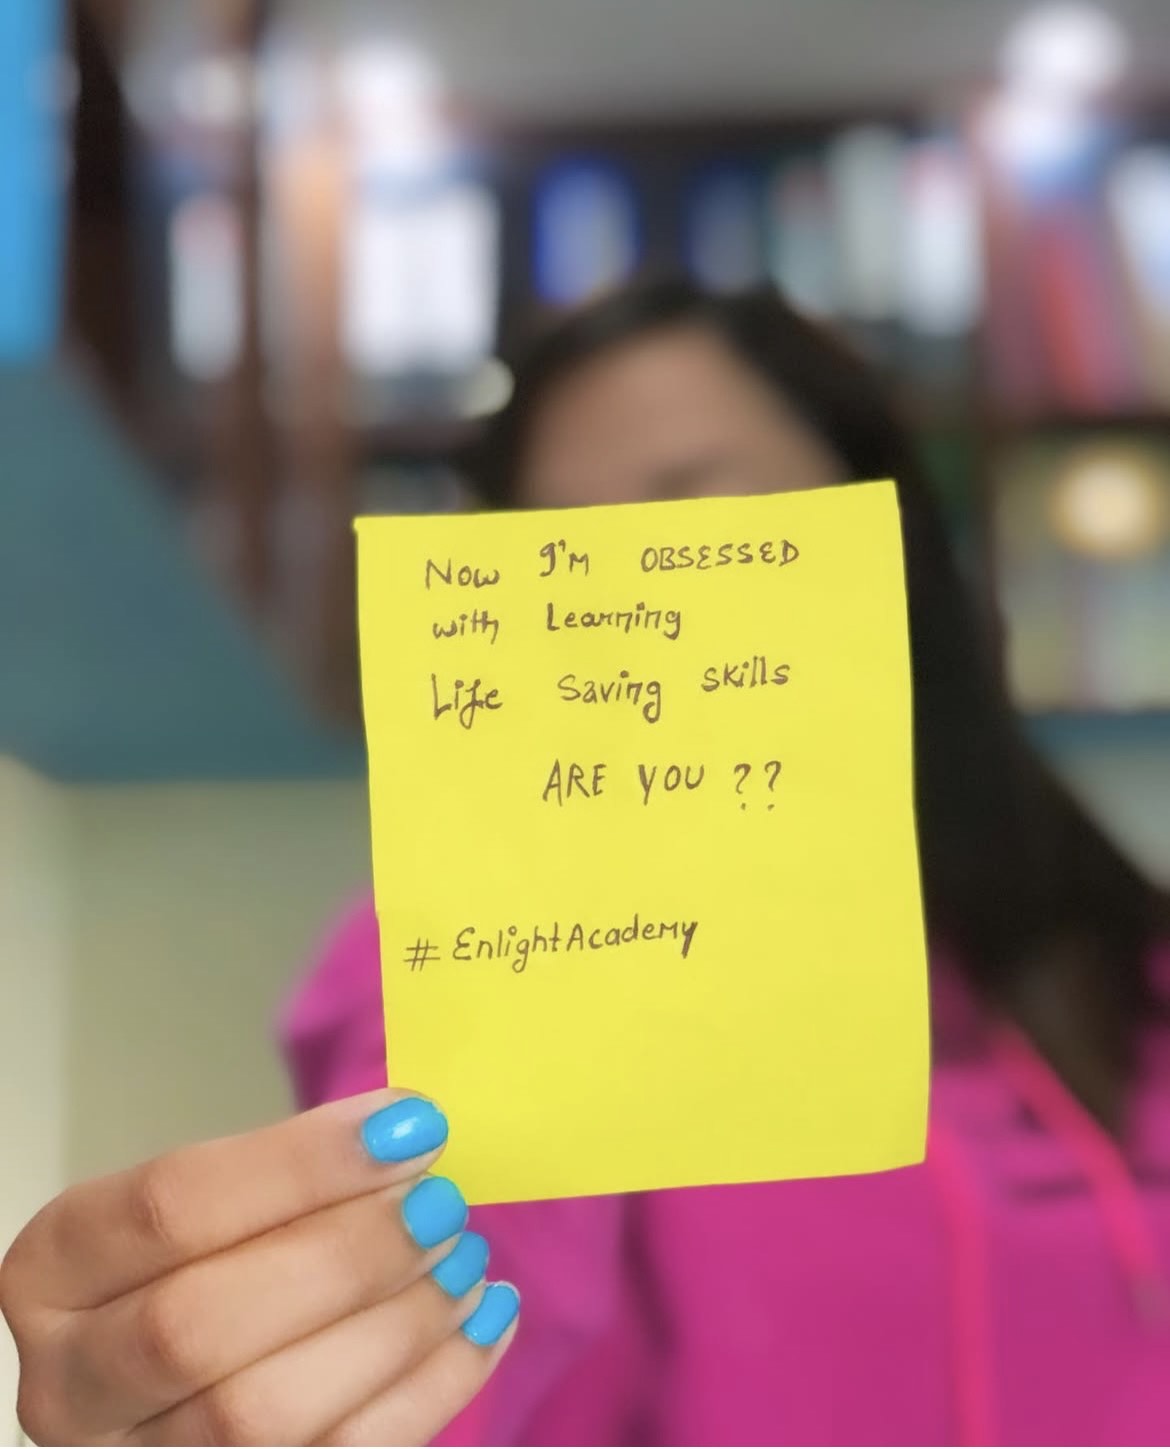 Now I'm OBSESSED
with Learning
Life Saving skills
ARE YOU ??
# EnlightAcademy